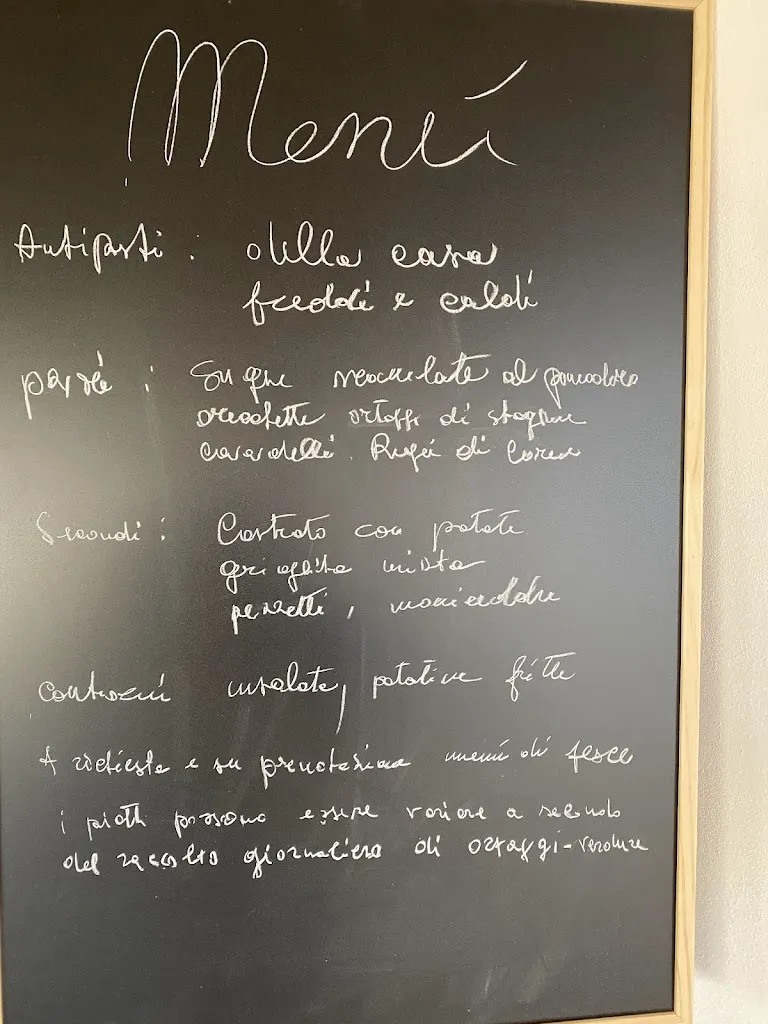 Menú
Antipasti : della casa
freddi e caldi
: Sugne al pomodoro
orecchiette ortaggi di stagione
cavatelli. di
Secondi : Castrato con patate
grigliata mista
pezzetti,
contorni insalate, patatine fritte
A richiesta e su prenotazione menú di pesce
i piatti possono essere variare a secondo
del raccolto giornaliero di ortaggi-verdure